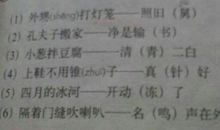 (1) 外甥(shēng)打灯笼——照旧(舅)
(2) 孔夫子搬家——净是输(书)
(3) 小葱拌豆腐——清(青)二白
(4) 上鞋不用锥(zhuī)子——真(针)好
(5) 四月的冰河——开动(冻)了
(6) 隔着门缝吹喇叭——名(鸣)声在外